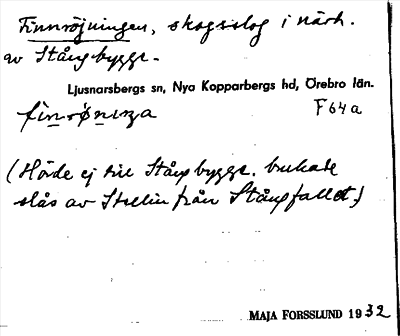 Finnröjningen, skogsslog i närh.
av Stångbygge.
Ljusnarsbergs sn, Nya Kopparbergs hd, Örebro län.
F 64 a
(Hörde ej till Stångbygge. brukade
slås av Stellin från Stångfallet.)
MAJA FORSSLUND 1932